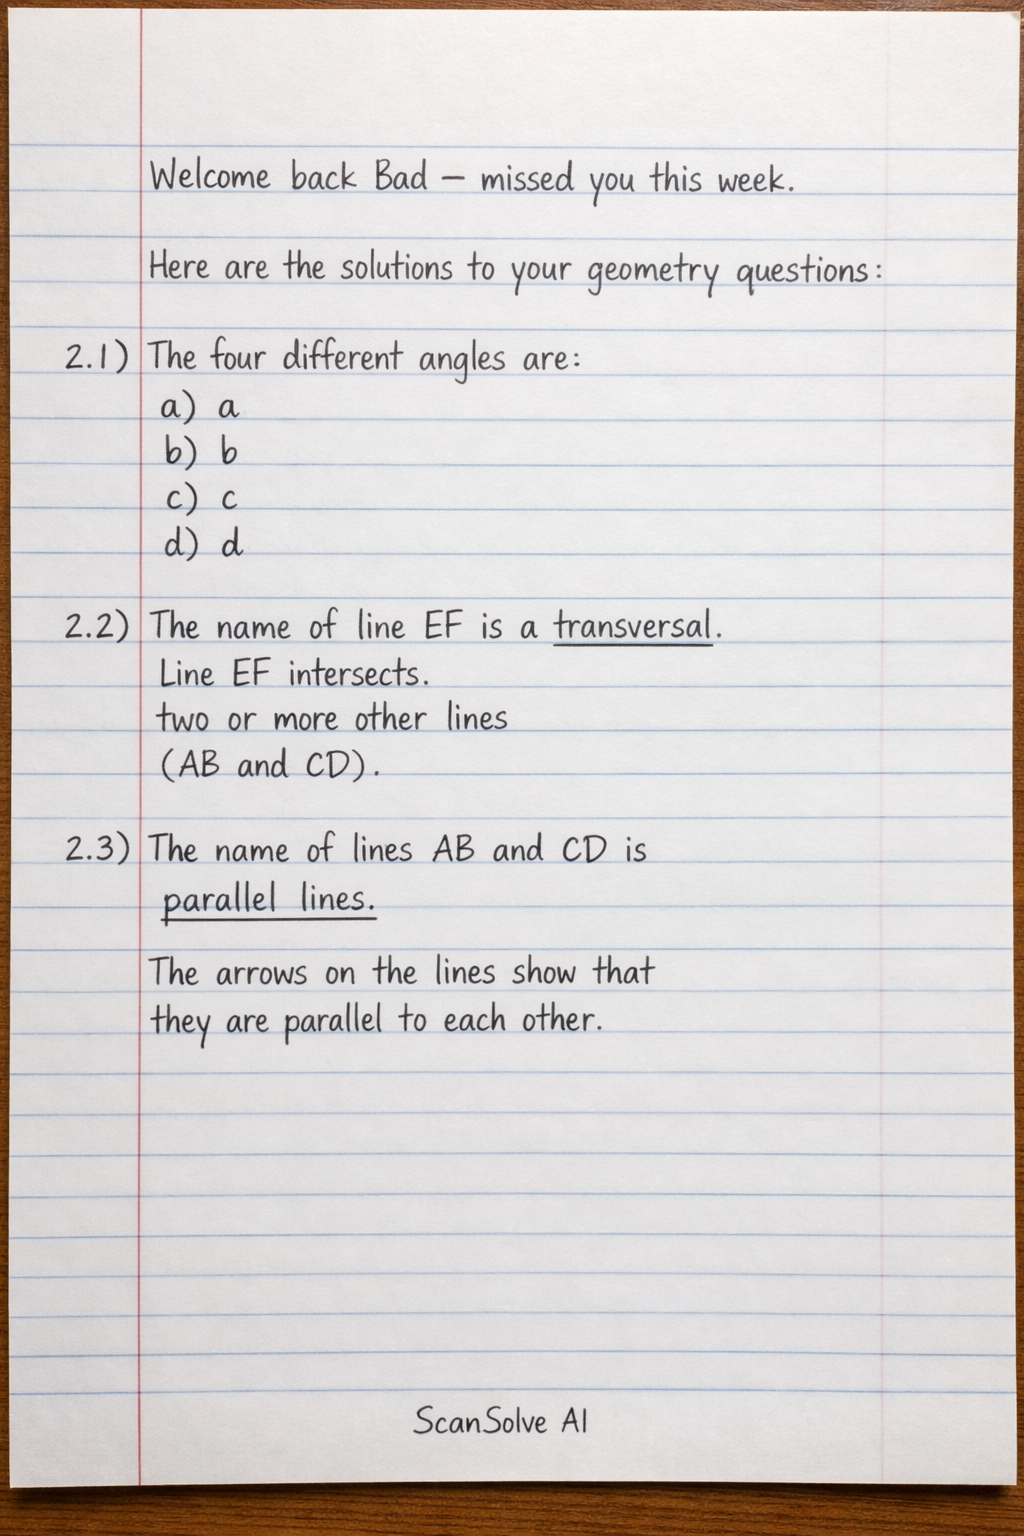 Welcome back Bad — missed you this week.
Here are the solutions to your geometry questions:
2.1) The four different angles are:
a) a
b) b
c) c
d) d
2.2) The name of line EF is a transversal.
Line EF intersects.
two or more other lines
(AB and CD).
2.3) The name of lines AB and CD is
parallel lines.
The arrows on the lines show that
they are parallel to each other.
ScanSolve AI